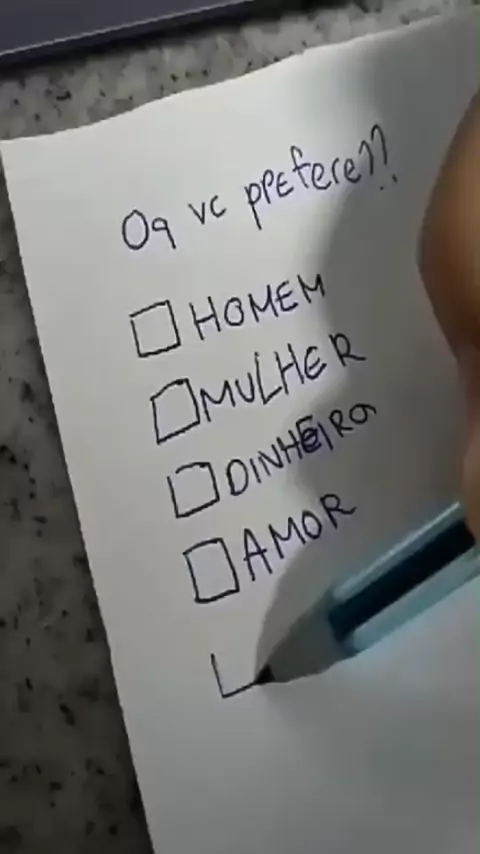 Oq vc prefere??
HOMEM
MULHER
DINHEIRO
AMOR